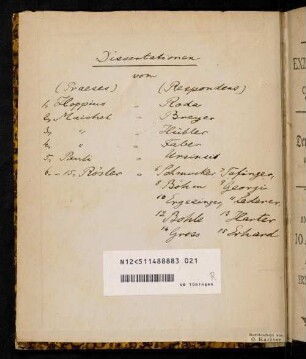 Dissertationen
von
(Praeses) (Respondens)
1, Hoppius - Roda
2, Maichel - Breyer
3, " - Hübler
4, " - Faber
5, Pauli - Ursinus
6.-15, Rösler - 6 Schmucker 7 Tafinger,
8 Böhm 9 Georgii
10 Ergezinger, 11 Lederer
12 Bohle 13 Harter
14 Gross 15 Erhard
N12<511488883 021
R
UB Tübingen
O. Karrer